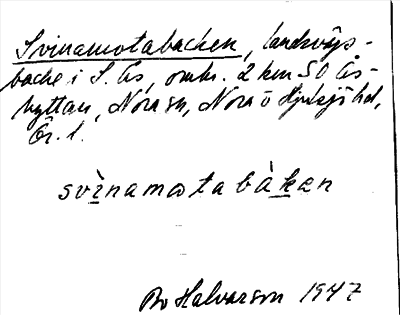 Svinamotabacken, landsvägs-
backe i S. Ås, omkr. 2 km SO Ås-
hyttan, Nora sn, Nora o Hjulsjö hd,
Ör. l.
svìnamωtabàken
Bo Halvarson 1947